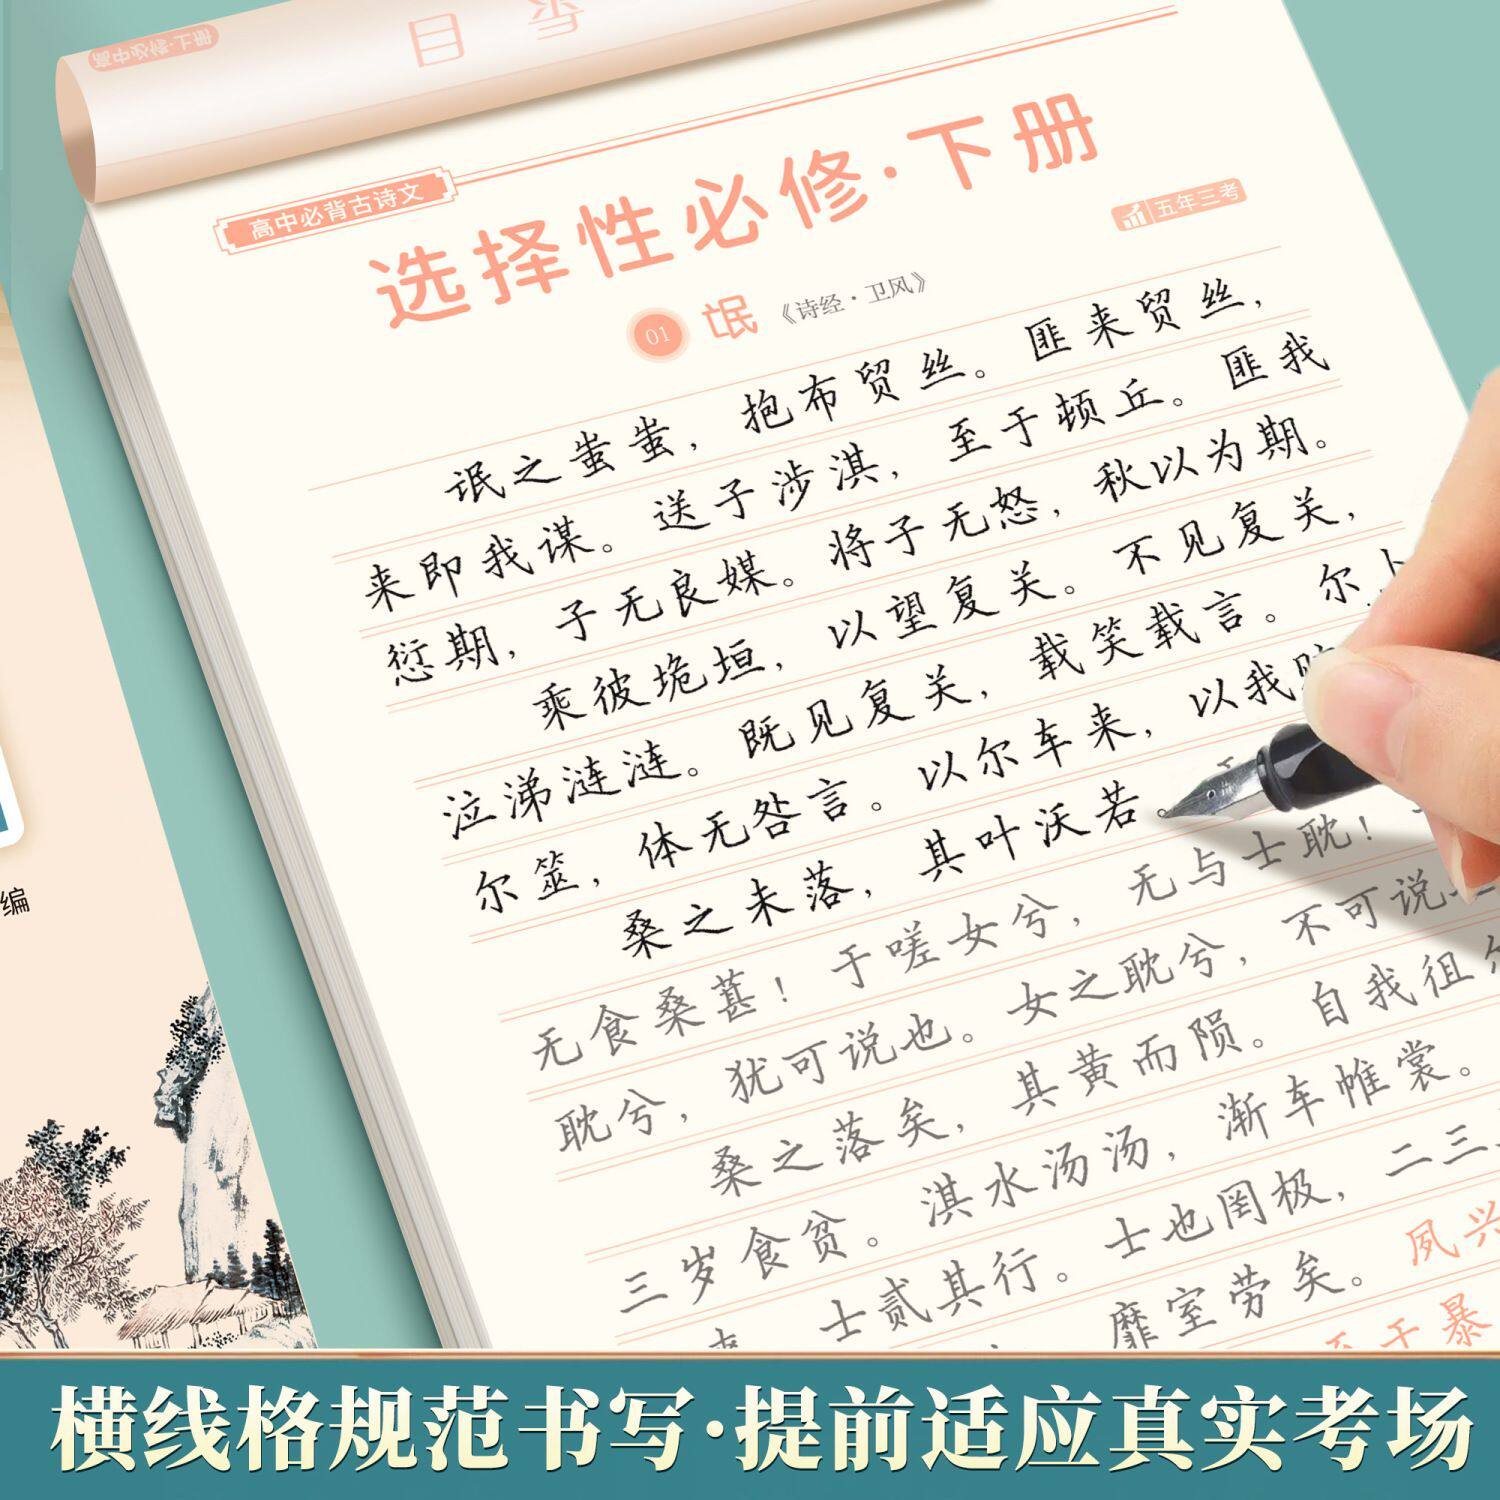 高中必修·上册
目
高中必背古诗文
选择性必修·下册
五年三考
01 氓 《诗经·卫风》
氓之蚩蚩，抱布贸丝。匪来贸丝，
来即我谋。送子涉淇，至于顿丘。匪我
愆期，子无良媒。将子无怒，秋以为期。
乘彼垝垣，以望复关。不见复关，
泣涕涟涟。既见复关，载笑载言。尔卜
尔筮，体无咎言。以尔车来，以我
桑之未落，其叶沃若。
无食桑葚！于嗟女兮，无与士耽！
耽兮，犹可说也。女之耽兮，不可说
桑之落矣，其黄而陨。自我徂尔
三岁食贫。淇水汤汤，渐车帷裳。
士贰其行。士也罔极，二三
靡室劳矣。夙兴
至于暴
编
横线格规范书写·提前适应真实考场